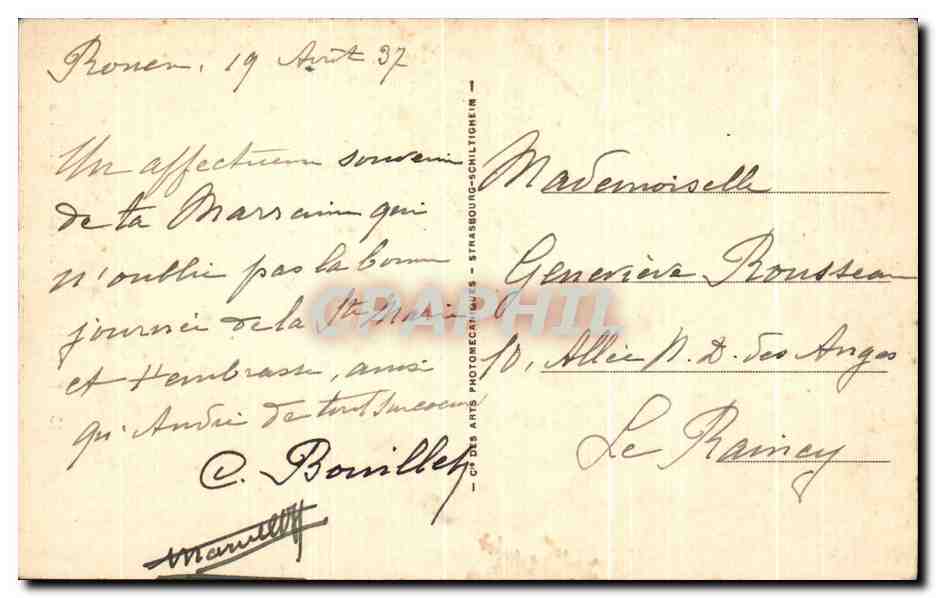 Rouen, 19 Août 37
Un affectueux souvenir
de ta Marraine qui
n'oublie pas la bonne
journée de la Ste Marie
et t'embrasse, ainsi
qu'André de tout son coeur
C. Bouillet
Cie DES ARTS PHOTOMECANIQUES - STRASBOURG-SCHILTIGHEIM
Mademoiselle
Geneviève Rousseau
10, Allée N. D. des Anges
Le Raincy
CPAPHIL